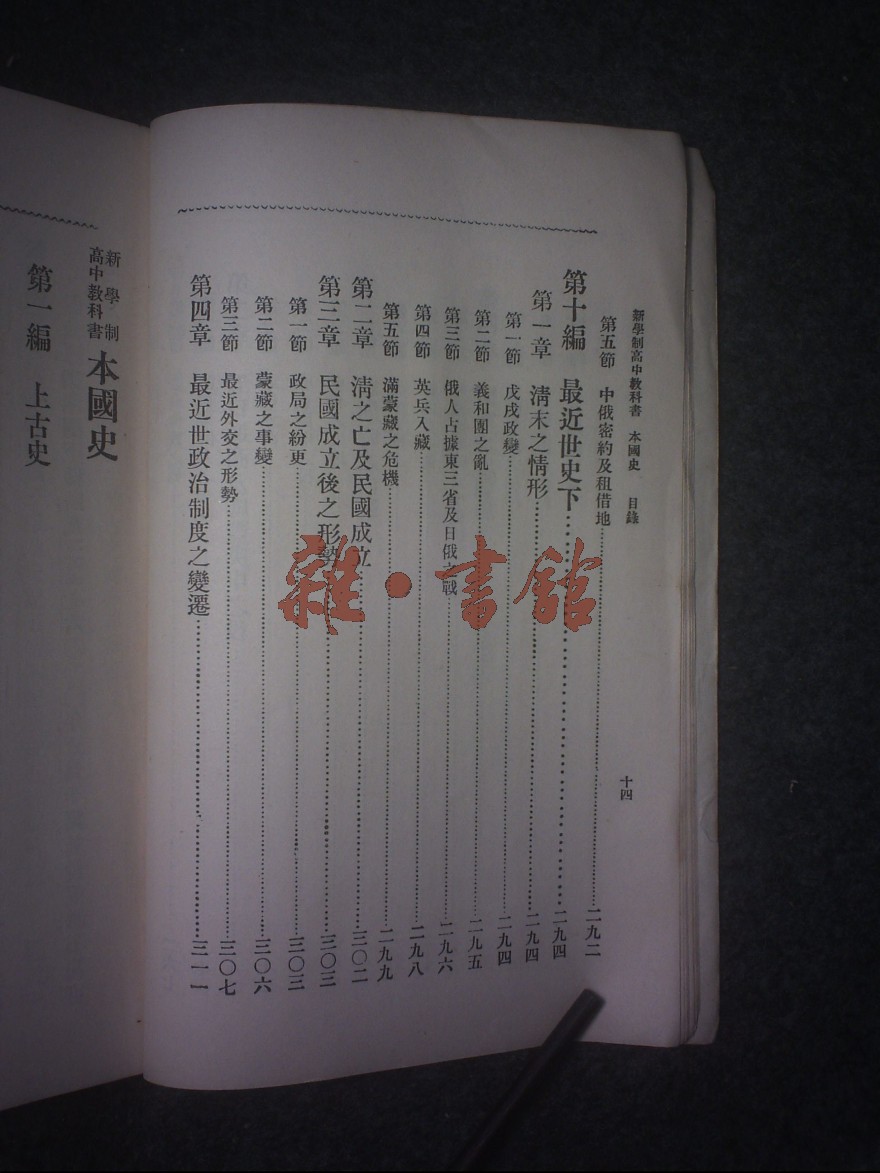 新學制高中教科書 本國史 目錄 十四
第五節 中俄密約及租借地 二九二
第十編 最近世史下 二九四
第一章 清末之情形 二九四
第一節 戊戌政變 二九四
第二節 義和團之亂 二九五
第三節 俄人占據東三省及日俄之戰 二九六
第四節 英兵入藏 二九八
第五節 滿蒙藏之危機 二九九
第二章 清之亡及民國成立 三〇二
第三章 民國成立後之形勢 三〇三
第一節 政局之紛更 三〇三
第二節 蒙藏之事變 三〇六
第三節 最近外交之形勢 三〇七
第四章 最近世政治制度之變遷 三一一
新學制高中教科書 本國史
第一編 上古史
雜·書館